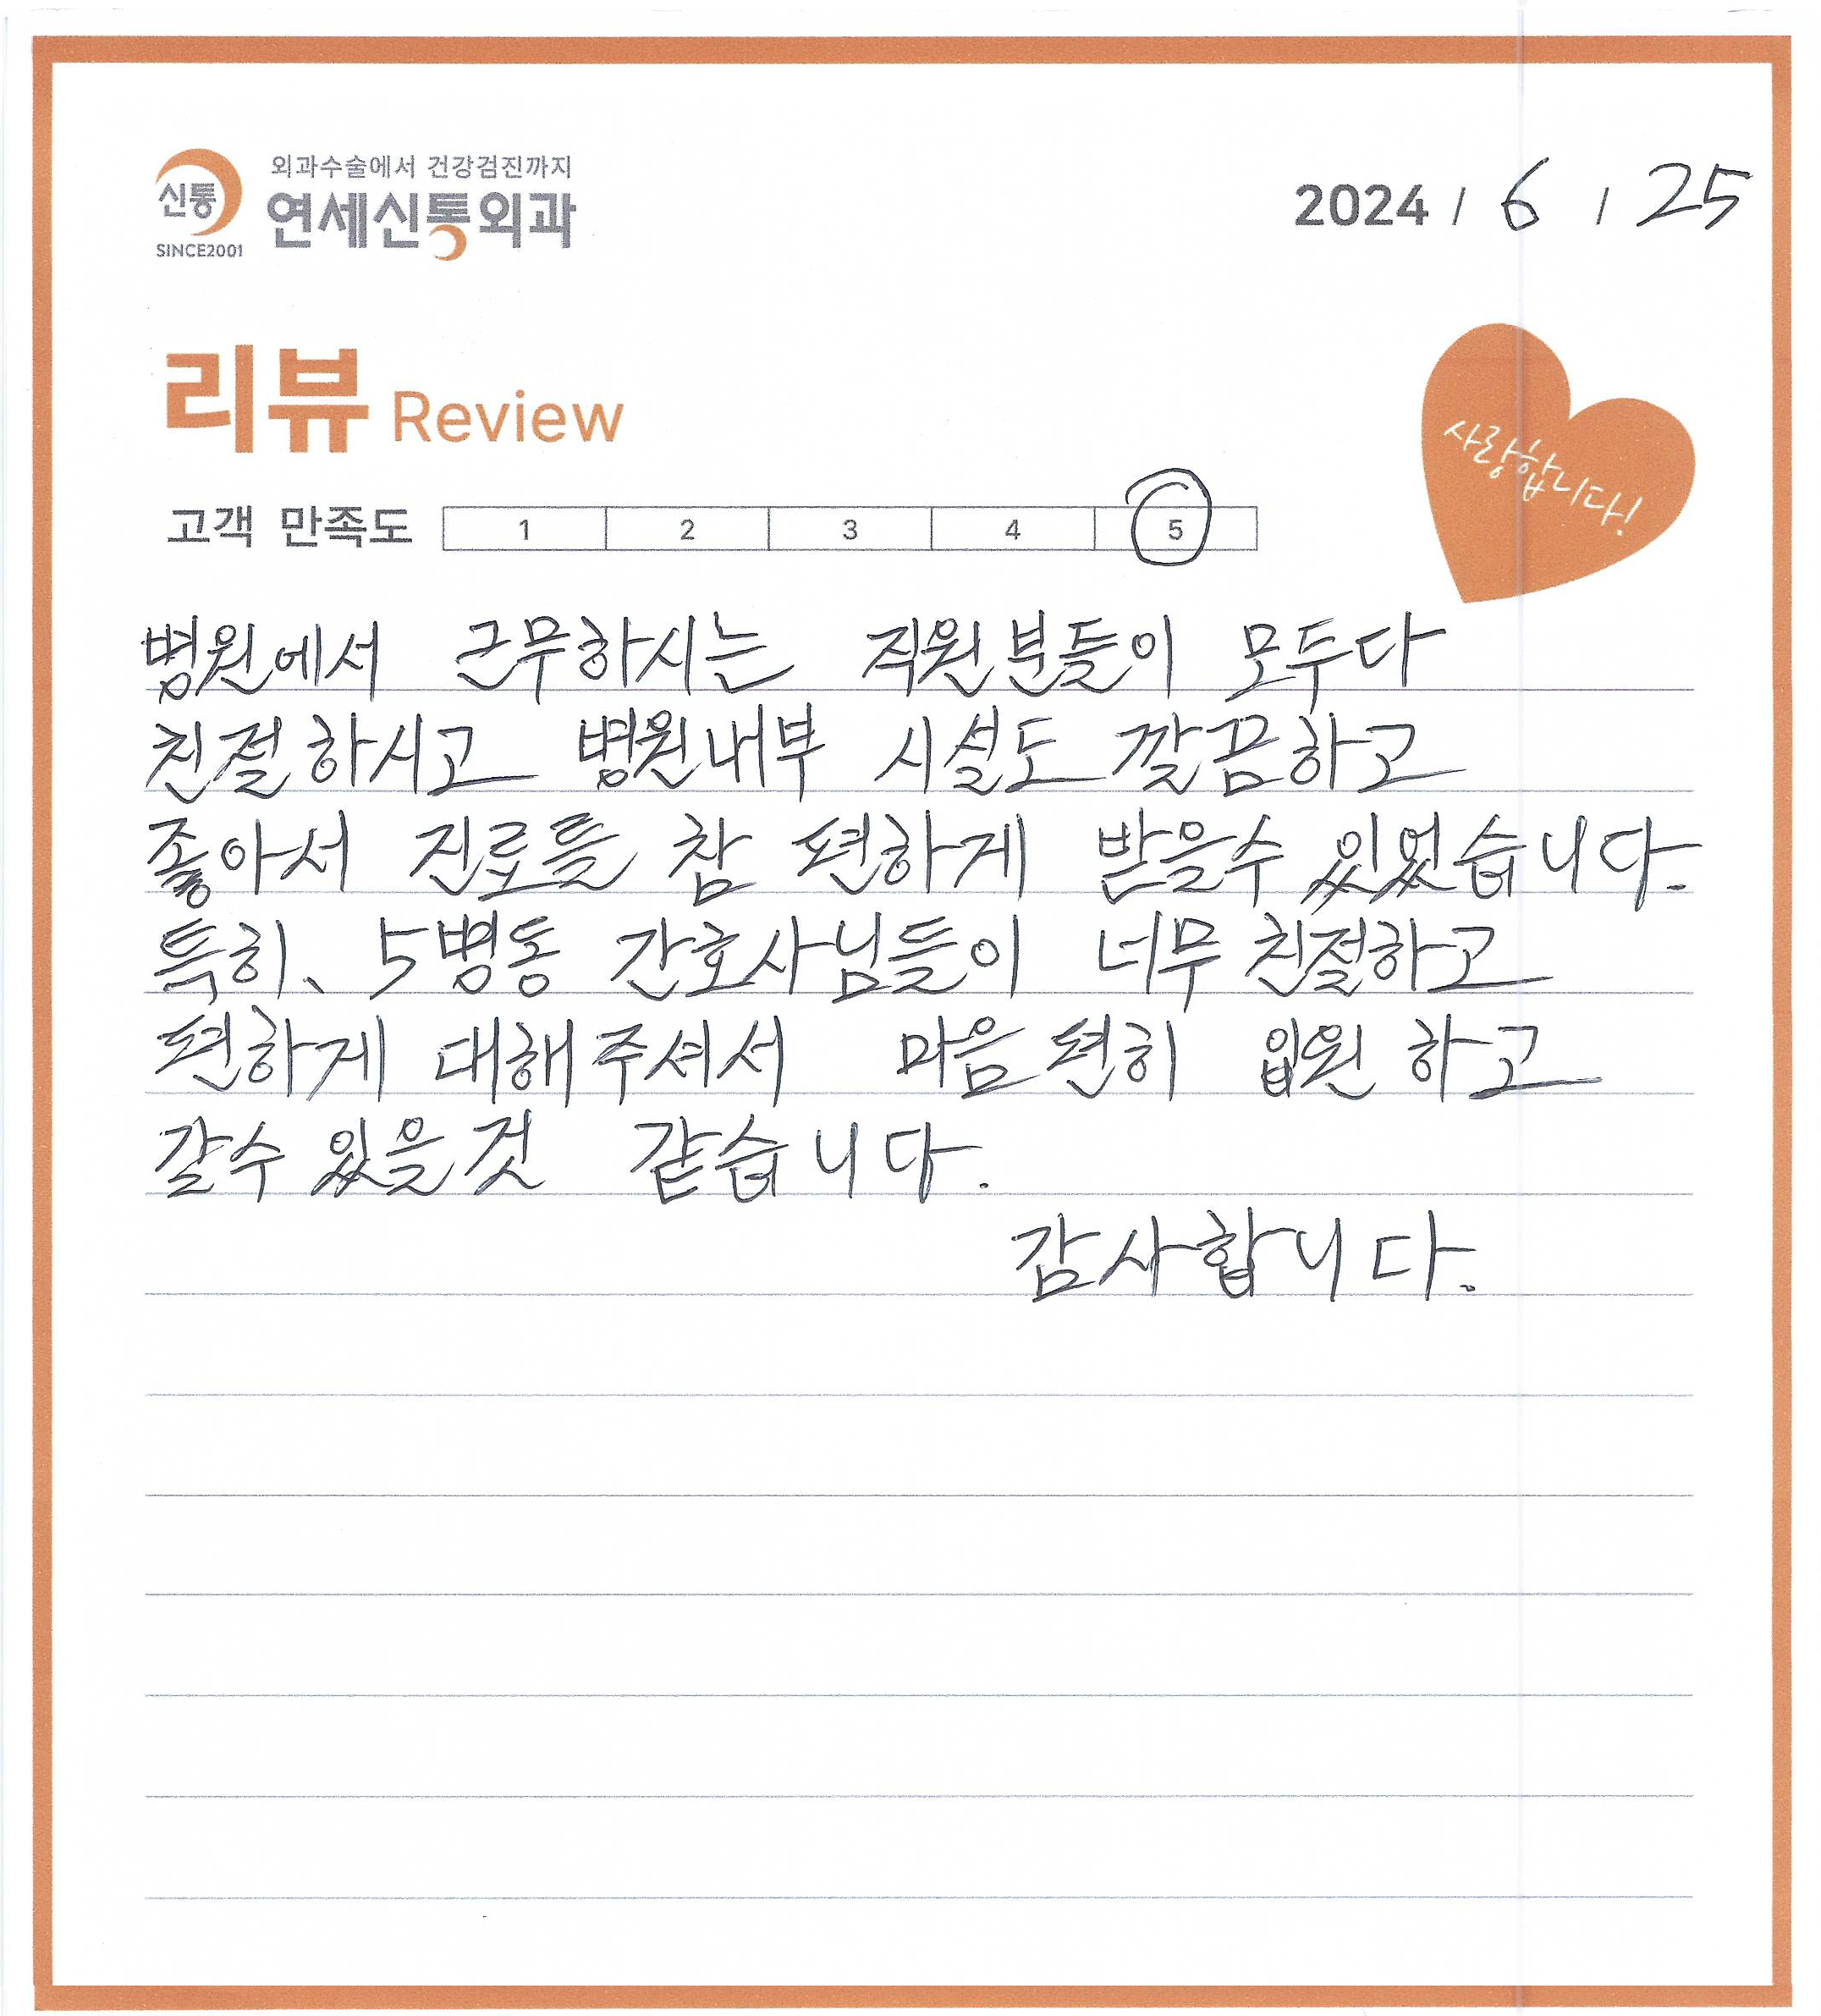 신통
SINCE2001
외과수술에서 건강검진까지
연세신통외과
2024 / 6 / 25
리뷰 Review
사랑합니다!
고객 만족도 1 2 3 4 5
병원에서 근무하시는 직원분들이 모두다
친절하시고 병원내부 시설도 깔끔하고
좋아서 진료를 참 편하게 받을수 있었습니다.
특히, 5병동 간호사님들이 너무 친절하고
편하게 대해주셔서 마음 편히 입원 하고
갈수 있을것 같습니다.
감사합니다.